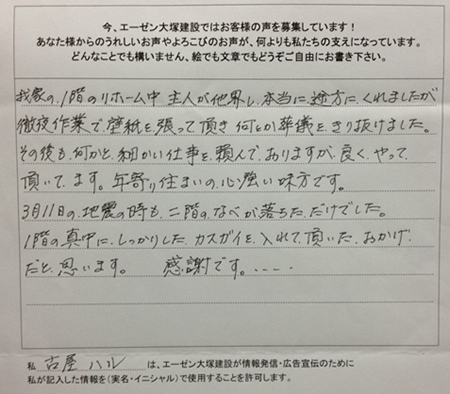 今、エーゼン大塚建設ではお客様の声を募集しています！
あなた様からのうれしいお声やよろこびのお声が、何よりも私たちの支えになっています。
どんなことでも構いません、絵でも文章でもどうぞご自由にお書き下さい。
我家の、1階のリホーム中 主人が他界し、本当に途方に、くれましたが
徹夜作業で、壁紙を、張って頂き 何とか葬儀を、きり抜けました。
その後も、何かと、細かい仕事を、頼んで、ありますが、良く、やって
頂いて、ます。年寄り住まいの、心強い味方です。
3月11日の、地震の時も、二階の、なべが落ちた、だけでした。
1階の真中に、しっかりした、カスガイを、入れて、頂いた、おかげ
だと、思います。 感謝です。‥‥
私 古屋 ハル は、エーゼン大塚建設が情報発信・広告宣伝のために
私が記入した情報を(実名・イニシャル)で使用することを許可します。